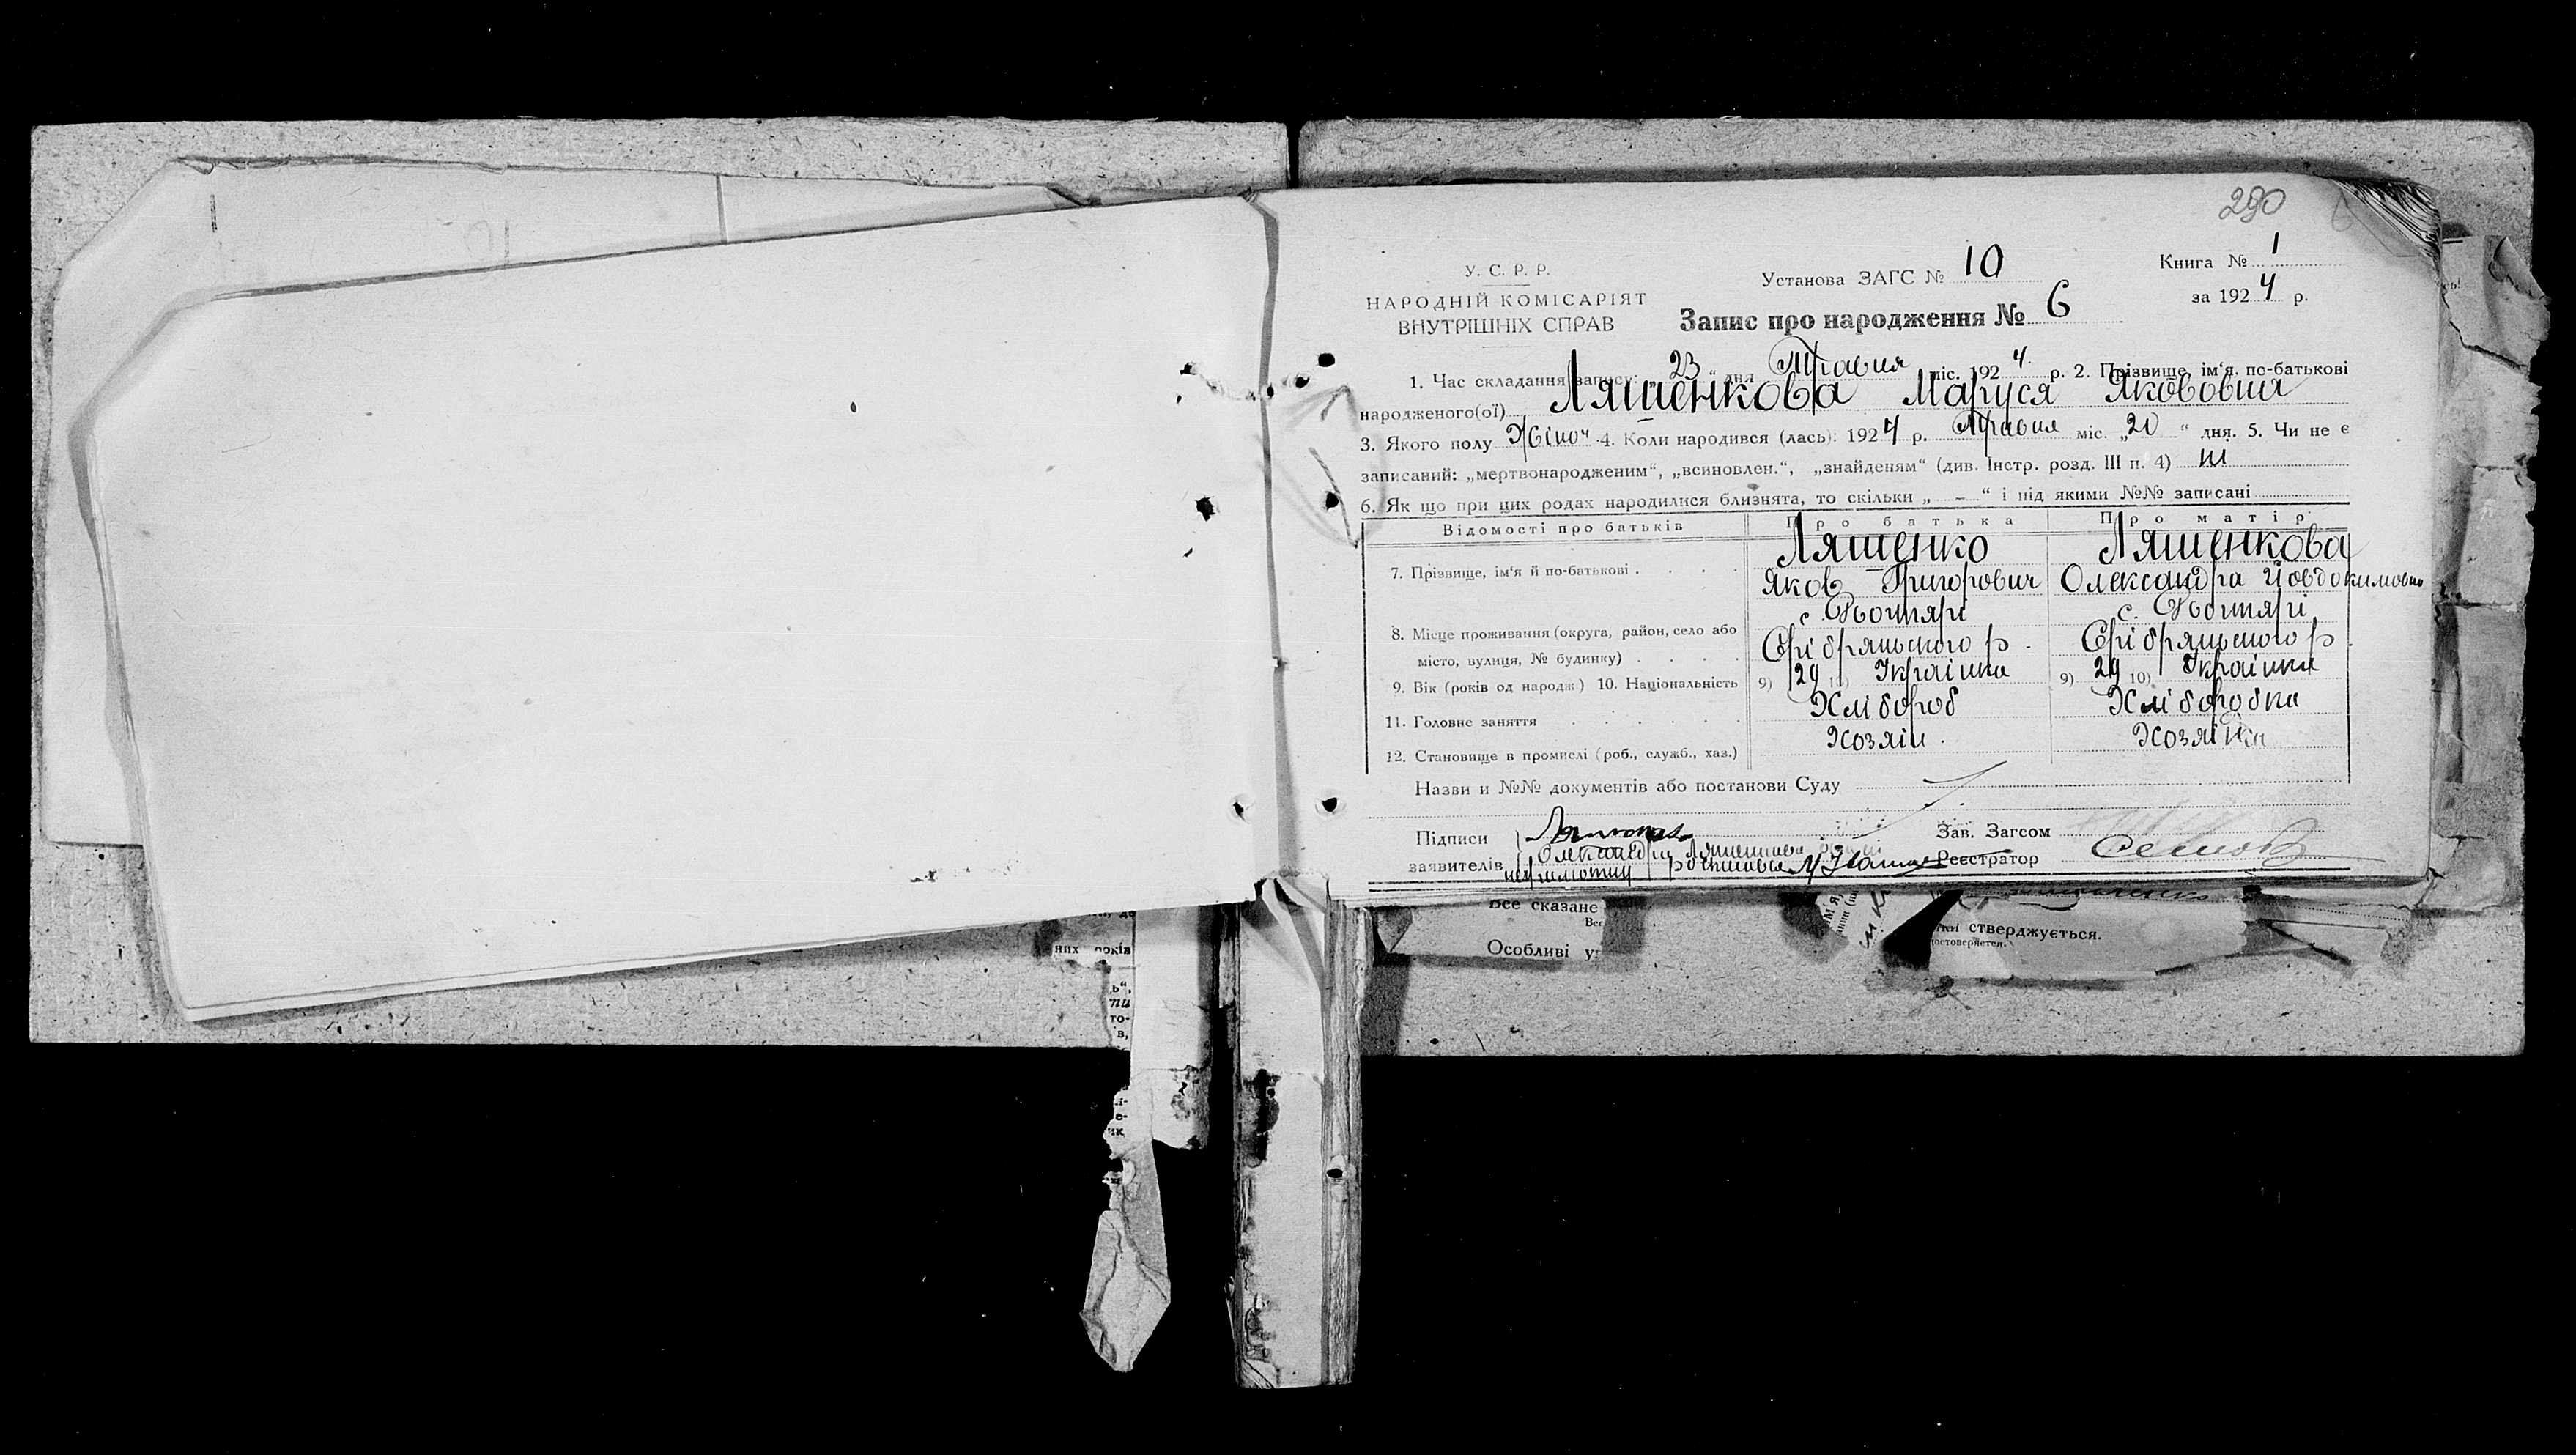 290
У. С. Р. Р.
НАРОДНІЙ КОМІСАРІЯТ
ВНУТРІШНІХ СПРАВ
Установа ЗАГС № 10
Книга № 1
за 1924 р.
Запис про народження № 6
1. Час складання запису: „23“ дня Травня міс. 1924 р. 2. Прізвище, ім‘я, по-батькові
народженого(ої) Ляшенкова Маруся Якововна
3. Якого полу Жіноч. 4. Коли народився (лась): 1924 р. Травня міс. „20“ дня. 5. Чи не є
записаний: „мертвонародженим“, „всиновлен.“, „знайденям“ (див. Інстр. розд. III п. 4) ні
6. Як що при цих родах народилися близнята, то скільки „ – “ і під якими №№ записані
Відомості про батьків Про батька Про матір
Ляшенко Ляшенкова
7. Прізвище, ім‘я й по-батькові Яков Григорович Олександра Йовдокимовна
с. с.
8. Місце проживання (округа, район, село або
місто, вулиця, № будинку) Срібрянського р. Срібрянського р.
9. Вік (років од народж.) 10. Національність 9) 29 10) Українка 9) 29 10) Українка
11. Головне заняття Хлібороб Хліборобка
12. Становище в промислі (роб., служб., хаз.) Хозяін Хозяінка
Назви и №№ документів або постанови Суду
Підписи
заявителів
Олександра Ляшенкова
Зав. Загсом
Реєстратор
Все сказане
Особливі
стверджується.
них років